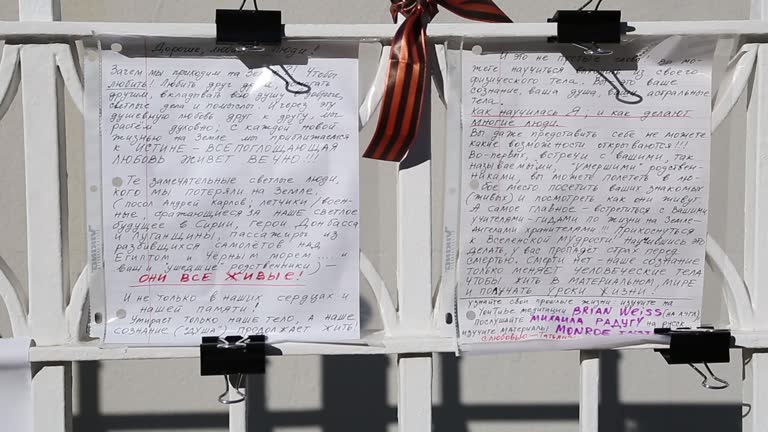 Дорогие, люди!
Зачем мы приходим на Чтобы
любить! Любить друг друга,
друга, вкладывая всю душу в
светлые дела и помыслы. И через эту
душевную любовь друг к другу, мы
растём духовно; с каждой новой
жизнью на Земле мы приближаемся
к ИСТИНЕ - ВСЕПОГЛОЩАЮЩАЯ
ЛЮБОВЬ ЖИВЁТ ВЕЧНО!!!
Те замечательные светлые люди,
кого мы потеряли на Земле,
(посол Андрей Карлов, лётчики/воен-
ные, сражающиеся за наше светлое
будущее в Сирии, герои Донбасса
и Луганщины, пассажиры из
разбившихся самолётов над
Египтом и Чёрным морем..... и
ваши "ушедшие" родственники) -
ОНИ ВСЕ ЖИВЫЕ!
И не только в наших сердцах и
нашей памяти!
Умирает только наше тело, а наше
сознание ("душа") - продолжает жить!
И это не пустые слова! Вы мо-
жете научиться из своего
физического тела. ваше
сознание, ваша душа, ваши астральные
тела..
Как научилась Я, и как делают
многие люди.
Вы даже представить себе не можете
какие возможности открываются!!!
Во-первых, встречи с вашими, так
называемыми, "умершими" родствен-
никами, вы можете полететь в лю-
бое место посетить ваших знакомых
(живых) и посмотреть как они живут.
А самое главное - встретиться с Вашими
учителями-гидами по жизни на Земле -
Ангелами хранителями!!! Прикоснуться
к Вселенской Мудрости. Научившись это
делать, у вас пропадёт страх перед
смертью. Смерти нет - наше сознание
только меняет человеческие тела
чтобы жить в материальном мире
и получать уроки жизни.
Узнайте свои прошлые жизни - изучите на
YouTube медитации BRIAN WEISS
Послушайте МИХАИЛА РАДУГУ на русск.
изучите материалы MONROE
С любовью - Татьяна